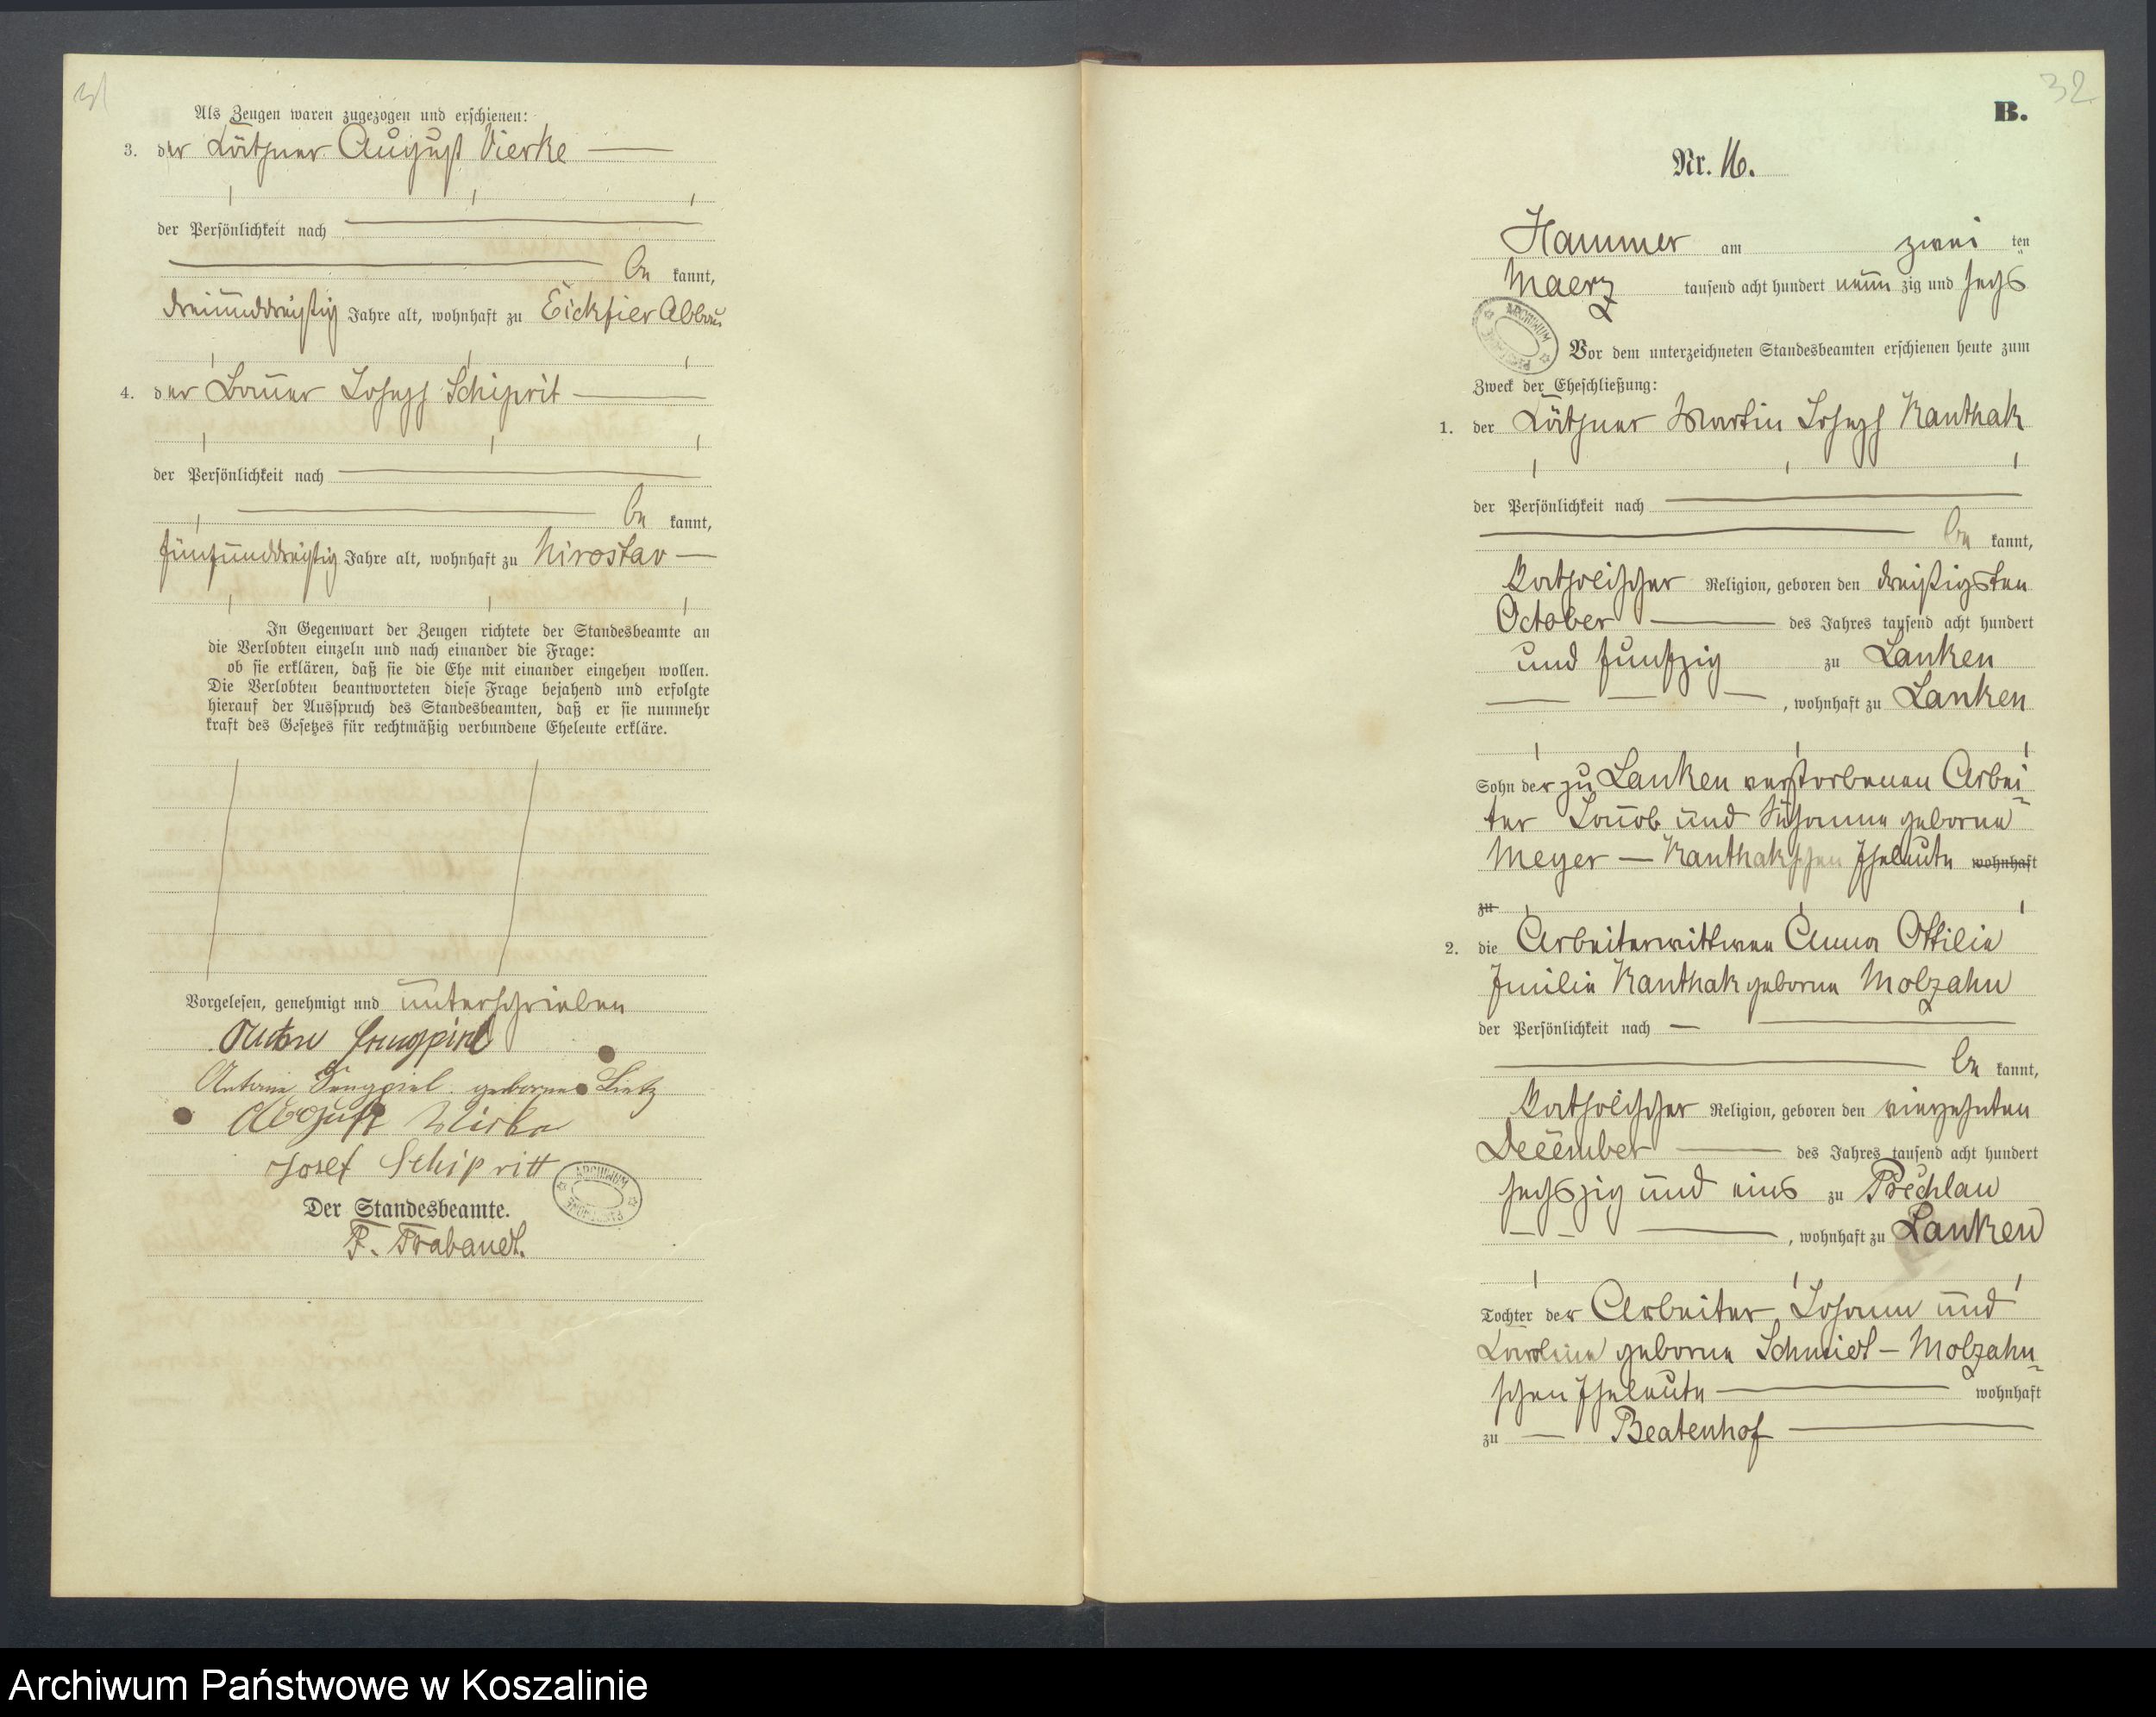 31
Als Zeugen waren zugezogen und erschienen:
3. der Käthner August Vierke
der Persönlichkeit nach
be kannt,
dreiunddreißig Jahre alt, wohnhaft zu Eickfier Abbau
4. der Bauer Joseph Schiprit
der Persönlichkeit nach
be kannt,
fünfunddreißig Jahre alt, wohnhaft zu Nirostav
In Gegenwart der Zeugen richtete der Standesbeamte an
die Verlobten einzeln und nach einander die Frage:
ob sie erklären, daß sie die Ehe mit einander eingehen wollen.
Die Verlobten beantworteten diese Frage bejahend und erfolgte
hierauf der Ausspruch des Standesbeamten, daß er sie nunmehr
kraft des Gesetzes für rechtmäßig verbundene Eheleute erkläre.
Vorgelesen, genehmigt und unterschrieben
Antonie geborne Lietz
August
Josef Schipritt
Der Standesbeamte.
F. Trabandt.
32
B.
Nr. 16.
Hammer am zwei ten
Maerz tausend acht hundert neun zig und sechs
ARCHIWUM
Vor dem unterzeichneten Standesbeamten erschienen heute zum
Zweck der Eheschließung:
1. der Käthner Martin Joseph Kanthak
der Persönlichkeit nach
be kannt,
katholischer Religion, geboren den dreißigsten
October des Jahres tausend acht hundert
und funfzig zu Lanken
, wohnhaft zu Lanken
Sohn der zu Lanken verstorbenen Arbei
ter Jacob und Susanna geborne
Meyer – Kanthakschen Eheleute wohnhaft
zu
2. die Arbeiterwittwe Anna Ottilie
Emilie Kanthak geborne Molzahn
der Persönlichkeit nach
be kannt,
katholischer Religion, geboren den vierzehnten
December des Jahres tausend acht hundert
sechszig und eins zu Prechlau
, wohnhaft zu Lanken
Tochter der Arbeiter Johann und
Karoline geborne Schmidt – Molzahn
schen Eheleute wohnhaft
zu Beatenhof
Archiwum Państwowe w Koszalinie